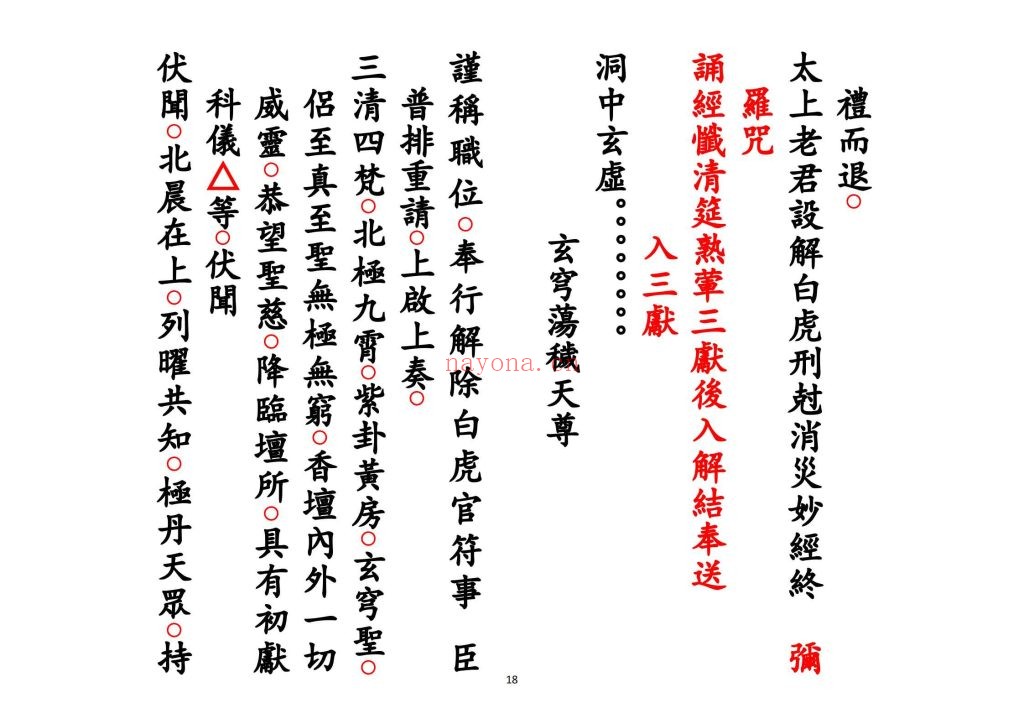 禮而退。
太上老君設解白虎刑尅消災妙經終　彌
羅咒
誦經懺清筵熟葷三獻後入解結奉送
入三獻
洞中玄虛。。。。。。。。
玄穹蕩穢天尊
謹稱職位。奉行解除白虎官符事　臣
普排重請。上啟上奏。
三清四梵。北極九霄。紫卦黃房。玄穹聖。
侶至真至聖無極無窮。香壇內外一切
威靈。恭望聖慈。降臨壇所。具有初獻
科儀△等。伏聞
伏聞。北晨在上。列曜共知。極丹天眾。持
nayona.cn
18